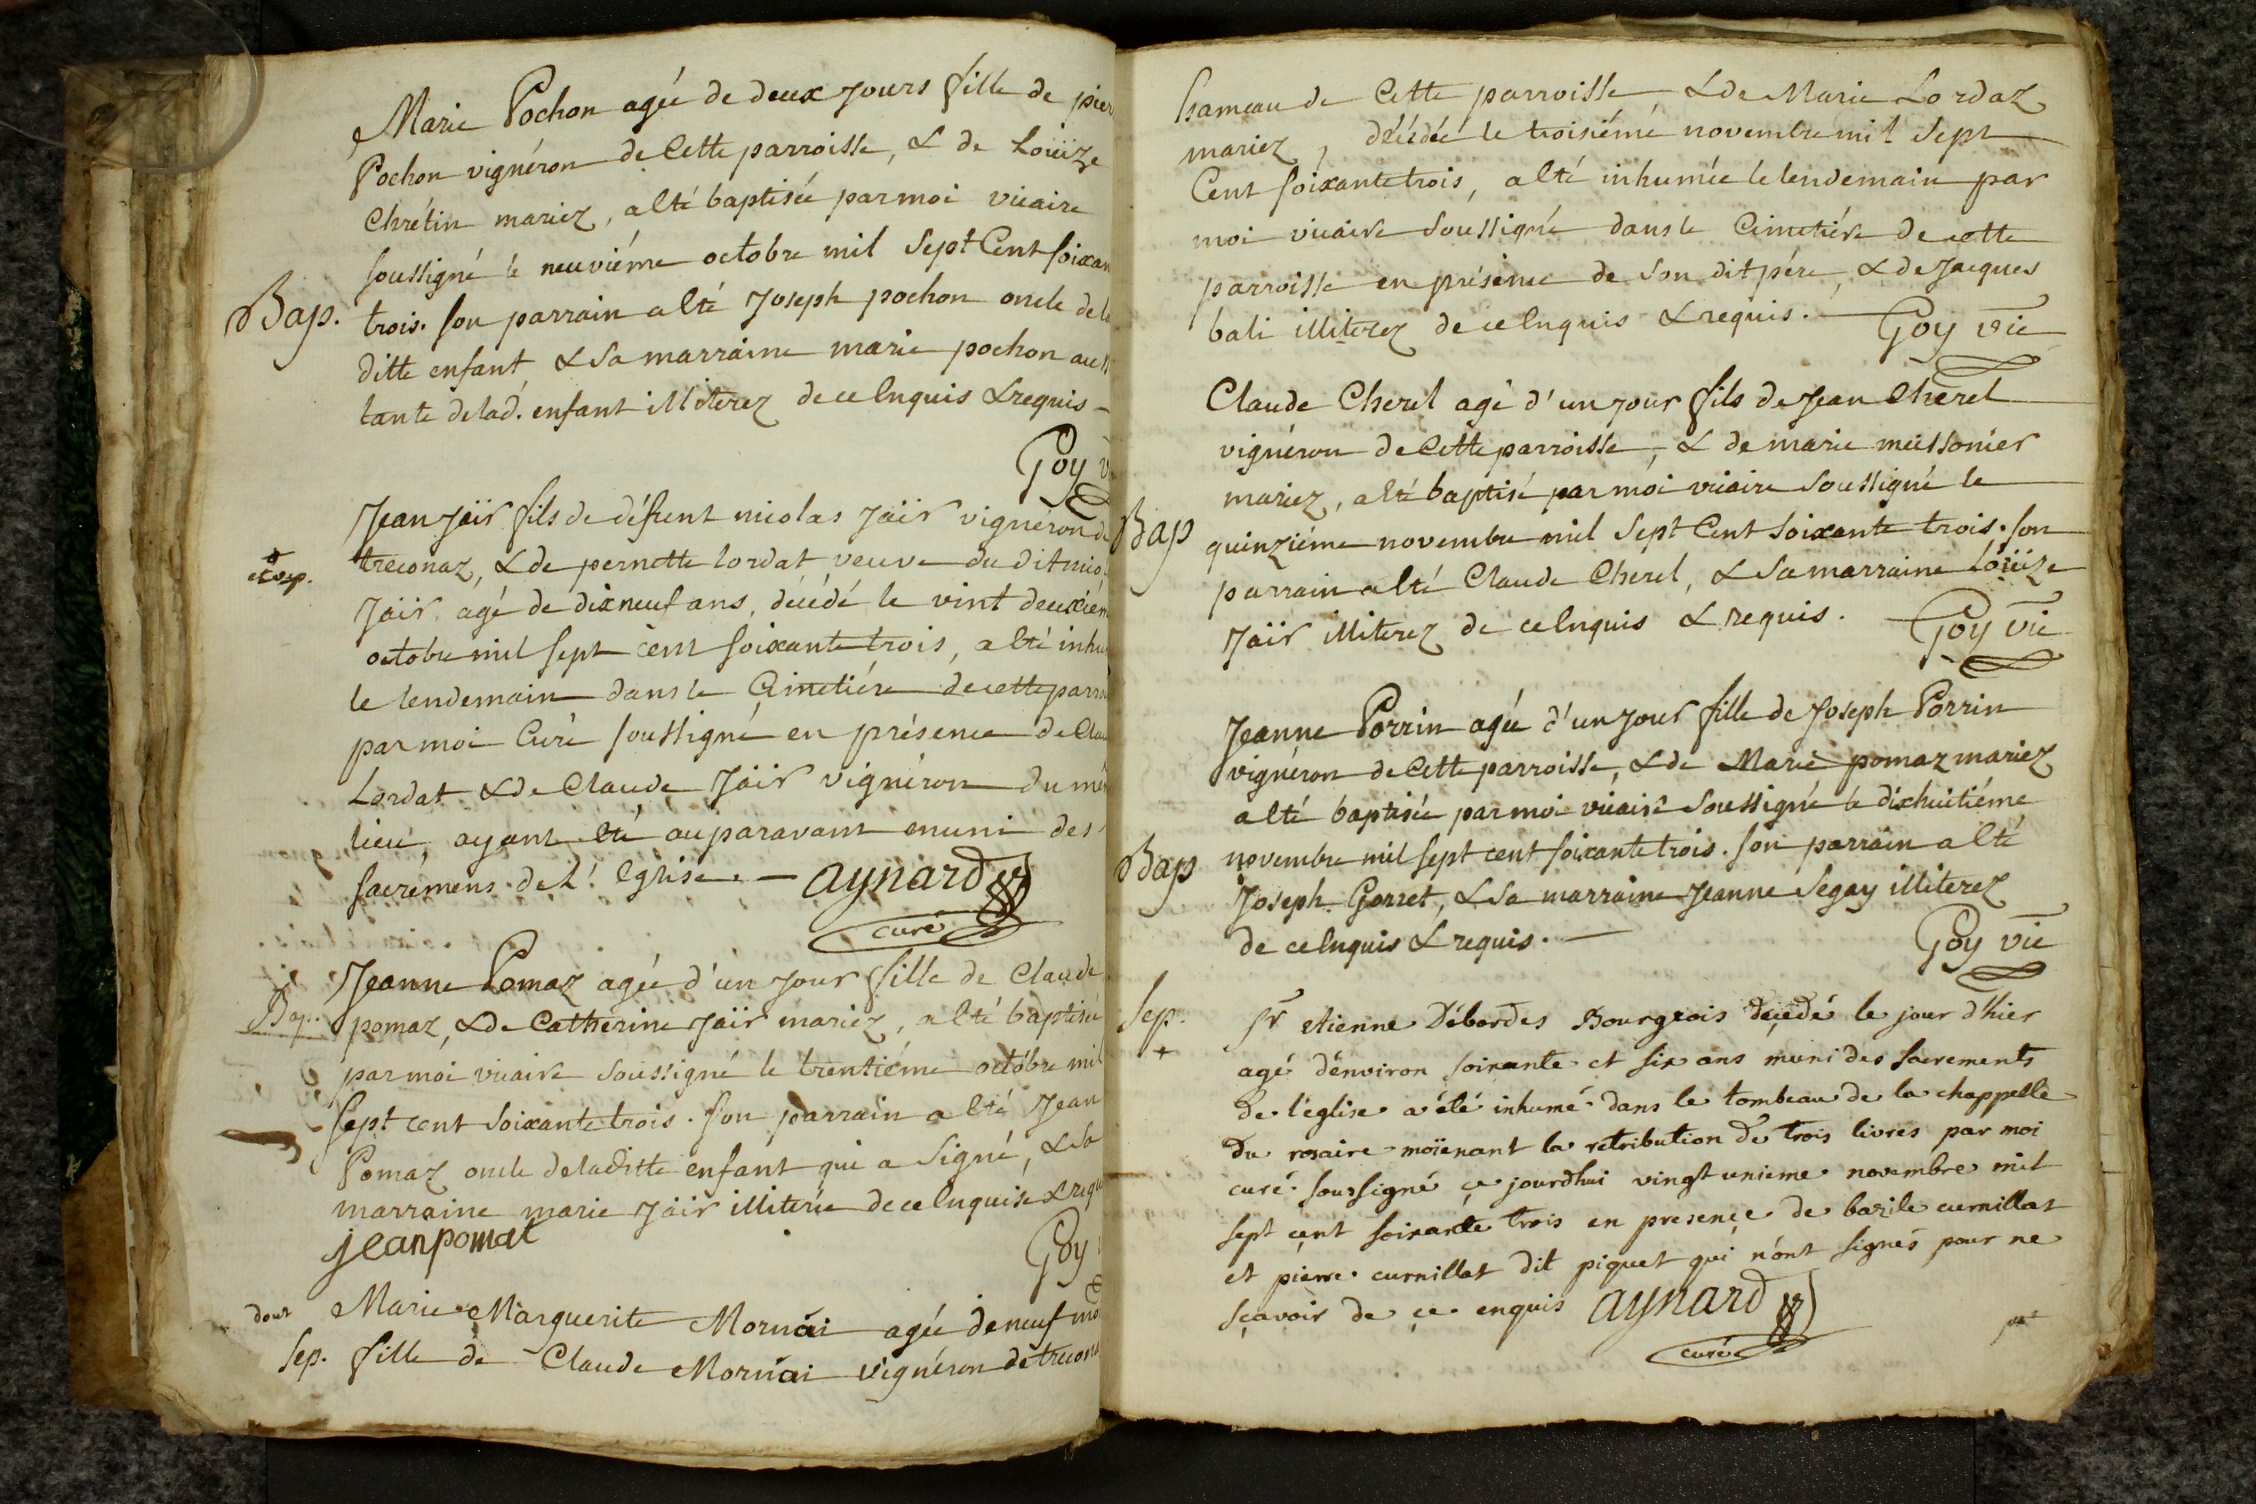 Marie Pochon agée de deux jours fille de pier
Pochon vignéron de Cette parroisse, & de Loüize
Chrétin mariez, a Eté baptisée par moi vicaire
soussigné le neuviéme octobre mil Sept Cent soixan
Bap.
trois. son parrain a Eté Joseph pochon oncle de la
ditte enfant & sa marraine marie pochon aussi
tante de lad. enfant illiterez de ce Enquis & requis -
Goy v
Jean Jaïr fils de défunt nicolas Jaïr vigneron de
+
Sep.
treconaz, & de pernette lordat veuve du dit nico
Jaïr agé de dixneuf ans, décédé le vint deuxiém
octobre mil sept cent soixante trois, a Eté inhu
le lendemain dans le Cimetiére de cette parro
par moi Curé soussigné en présence de Clau
Lordat & de Claude Jaïr vignéron du mê
lieu, ayant Eté auparavant muni des
sacremens de l'Eglise. - aynard
curé
Jeanne Pomaz agée d'un Jour fille de Claude
Bap.
pomaz, & de Catherine Jaïr mariez, a Eté baptisée
par moi vicaire soussigné le trentiéme octobre mil
sept cent soixante trois. son parrain a Eté Jean
Pomaz oncle de laditte enfant qui a signé, & sa
marraine marie Jaïr illiterée de ce Enquise & requ
jean pomat
Goy
Marie Marguerite Mornäi agée de neuf mo
Sep.
fille de Claude Mornäi vignéron de trecona
hameau de Cette parroisse, & de Marie Lordaz
mariez, décédée le troisiéme novembre mil Sept
Cent soixante trois, a Eté inhumée le lendemain par
moi vicaire soussigné dans le Cimetiére de cette
parroisse en présence de son dit pére, & de Jacques
bali illiterez de ce Enquis & requis. Goy vic
Claude Cherel agé d'un Jour fils de Jean Cherel
vignéron de Cette parroisse, & de marie meissonier
mariez, a Eté baptisé par moi vicaire soussigné le
Bap
quinziéme novembre mil Sept Cent soixante trois. son
parrain a Eté Claude Cherel, & sa marraine Loüize
Jaïr illiterez de ce Enquis & requis. Goy vic
Jeanne Perrin agée d'un Jour fille de Joseph Perrin
vignéron de Cette parroisse, & de Marie pomaz mariez
a Eté baptisée par moi vicaire soussigné le dixhuitiéme
Bap
novembre mil sept cent soixante trois. son parrain a Eté
Joseph Gorret, & sa marraine Jeanne Segay illiterez
de ce Enquis & requis. -
Goy vic
Sep.
+
sr etienne Débordes Bourgeois décedé le jour d'hier
agé d'environ soixante et six ans muni des sacrements
de l'église a été inhumé dans le tombeau de la chappelle
du rosaire moïenant la retribution de trois livres par moi
curé soussigné ce jourdhui vingt unieme novembre mil
sept cent soixante trois en presence de bazile curnillat
et pierre curnillat dit piquet qui n'ont signés pour ne
sçavoir de ce enquis aynard
curé